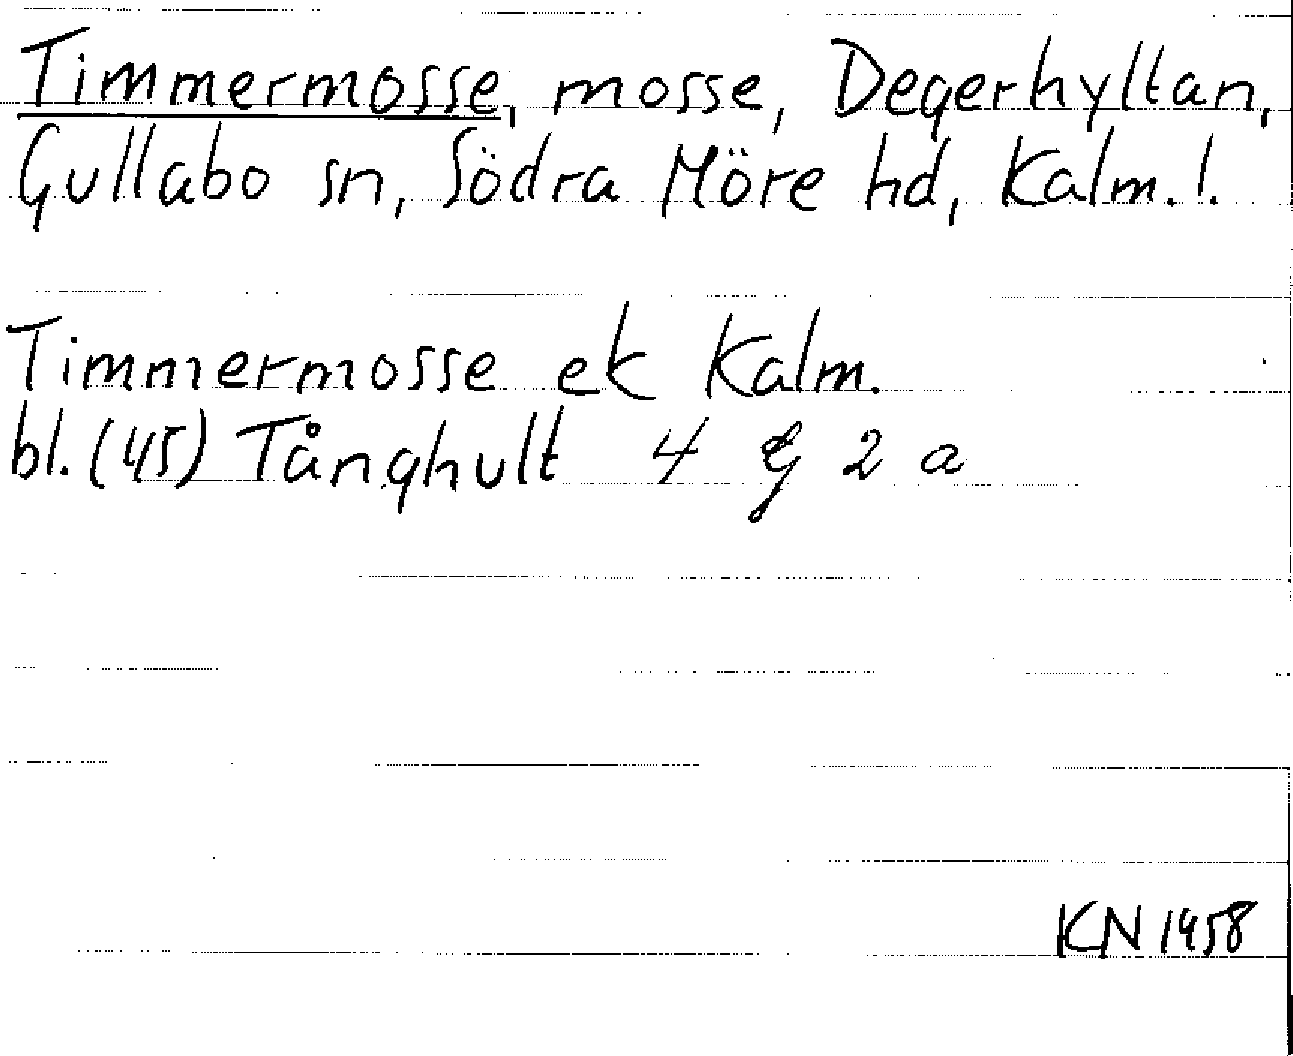 Timmermosse, mosse, Degerhyltan,
Gullabo sn, Södra Möre hd, Kalm. l.
Timmermosse ek Kalm.
bl. (45) Tånghult 4 g 2 a
KN 1958